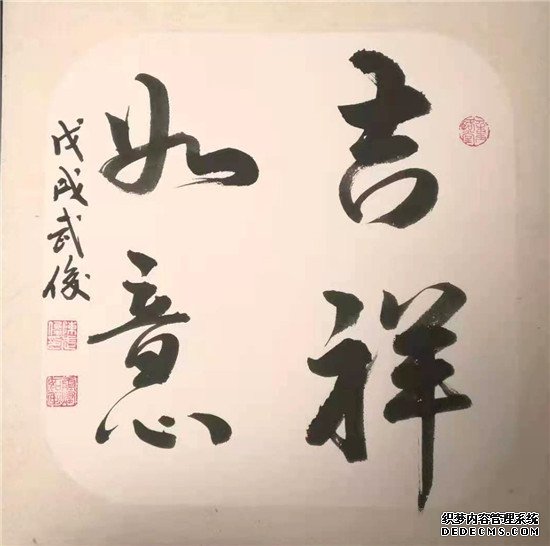 吉祥
如意
戊戌武俊
织梦内容管理系统
DEDECMS.COM